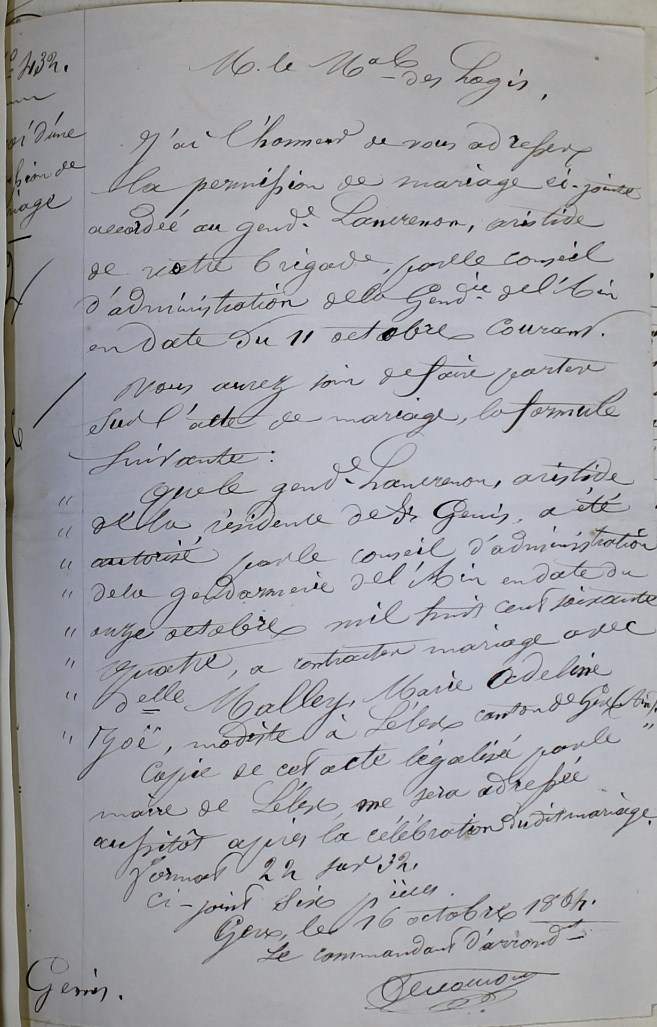 432.
M. le Mal des Logis,
d'une
de
J'ai l'honneur de vous adresser
la permission de mariage ci-jointe
accordée au gend.e Lancrenon, aristide
de votre brigade, par le conseil
d'administration de la Gend.ie de l'Ain
en date du 11 octobre courant.
Vous aurez soin de faire porter
sur l'acte de mariage, la formule
suivante :
" Que le gend.e Lancrenon, aristide
" de la résidence de St Genis, a été
" autorisé par le conseil d'administration
" de la gendarmerie de l'Ain en date du
" onze octobre mil huit cent soixante
" quatre, a contracter mariage avec
" delle Malley, Marie Adeline
" Zoë, modiste à Lélex canton de Gex (Ain). "
Copie de cet acte légalisé par le
maire de Lélex me sera adressée
aussitôt après la célébration dudit mariage.
Format 22 sur 32.
Ci-joint six pièces.
Gex, le 16 octobre 1864.
Le commandant d'arrondt
Genis.